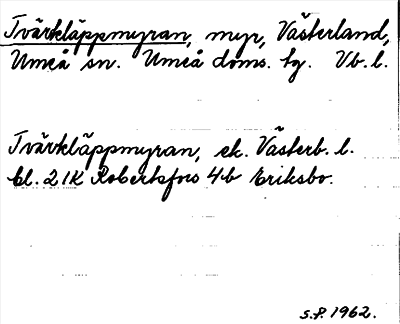 Tvärkläppmyran, myr, Västerland,
Umeå sn. Umeå doms. tg. Vb. l.
Tvärkläppmyran, ek. Västerb. l.
bl. 21K Robertsfors 4b Eriksbo.
S.P. 1962.